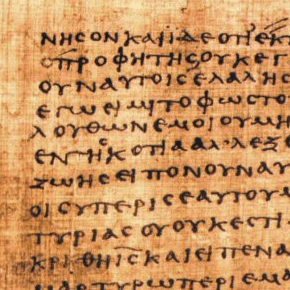 ΝΗϹΟΝΚΑΙΪΔΕΟΤΙΕΚ
ΟΠΡΟΦΗΤΗϹΟΥΚΕΓ
ΟΥΝΑΥΤΟΙϹΕΛΑΛΗϹ
ΕΓΩΕΙΜΙΤΟΦΩϹΤΟ
ΛΟΥΘΩΝΕΜΟΙΟΥΜΗ
ΕΝΤΗϹΚΟΤΙΑΑΛΛΕΞΕ
ΖΩΗϹΕΙΠΟΝΟΥΝΑΥ
ΟΙϹΥΠΕΡΙϹΕΑΥΤΟΥΜ
ΤΥΡΙΑϹΟΥΟΥΚΕϹΤΙ
ΚΡΙΘΗΙϹΚΑΙΕΙΠΕΝΑ
ΜΑΡΤΥΡΩΠΕΡΙΕΜΑ